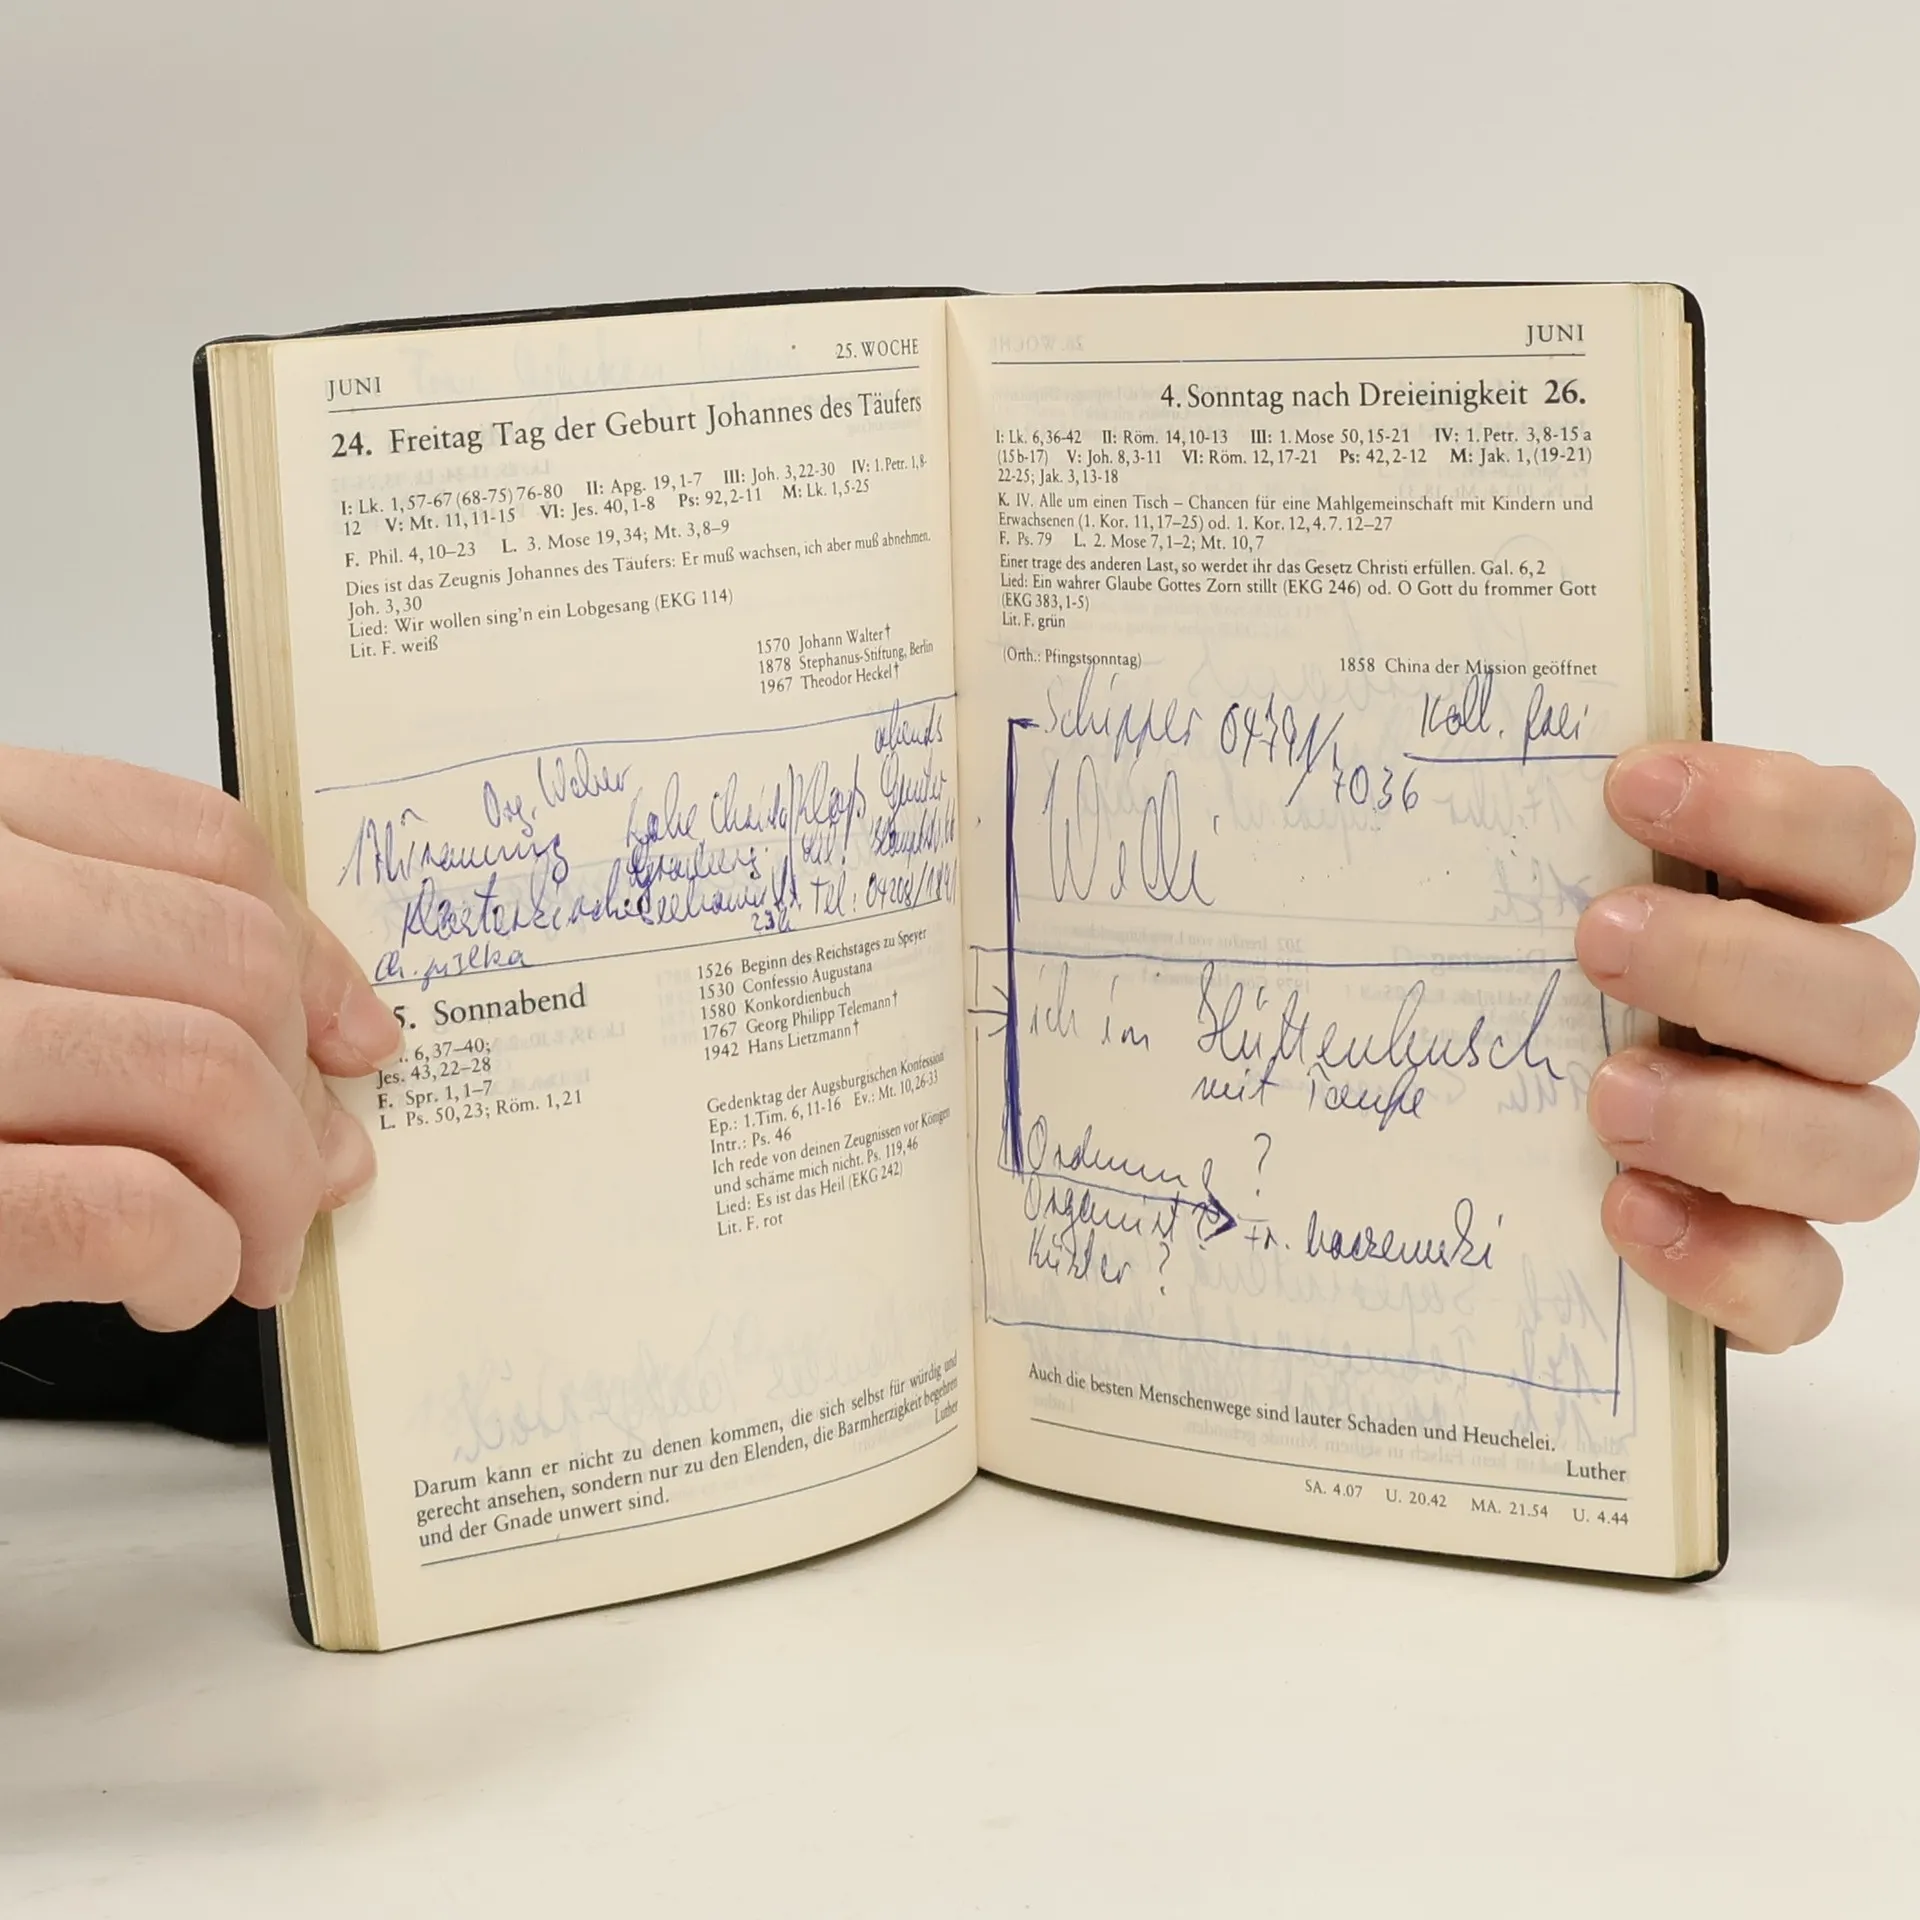 JUNI
25. WOCHE
24. Freitag Tag der Geburt Johannes des Täufers
I: Lk. 1,57-67 (68-75) 76-80 II: Apg. 19,1-7 III: Joh. 3,22-30 IV: 1. Petr. 1,8-
12 V: Mt. 11,11-15 VI: Jes. 40,1-8 Ps: 92,2-11 M: Lk. 1,5-25
F. Phil. 4,10–23 L. 3. Mose 19,34; Mt. 3,8–9
Dies ist das Zeugnis Johannes des Täufers: Er muß wachsen, ich aber muß abnehmen.
Joh. 3,30
Lied: Wir wollen sing'n ein Lobgesang (EKG 114)
Lit. F. weiß
1570 Johann Walter†
1878 Stephanus-Stiftung, Berlin
1967 Theodor Heckel†
abends
Org. Weber
Tel: 04208/
5. Sonnabend
6,37–40;
Jes. 43,22–28
F. Spr. 1,1–7
L. Ps. 50,23; Röm. 1,21
1526 Beginn des Reichstages zu Speyer
1530 Confessio Augustana
1580 Konkordienbuch
1767 Georg Philipp Telemann†
1942 Hans Lietzmann†
Gedenktag der Augsburgischen Konfession
Ep.: 1. Tim. 6,11-16 Ev.: Mt. 10,26-33
Intr.: Ps. 46
Ich rede von deinen Zeugnissen vor Königen
und schäme mich nicht. Ps. 119,46
Lied: Es ist das Heil (EKG 242)
Lit. F. rot
Darum kann er nicht zu denen kommen, die sich selbst für würdig und
gerecht ansehen, sondern nur zu den Elenden, die Barmherzigkeit begehren
und der Gnade unwert sind.
Luther
JUNI
4. Sonntag nach Dreieinigkeit 26.
I: Lk. 6,36-42 II: Röm. 14,10-13 III: 1. Mose 50,15-21 IV: 1. Petr. 3,8-15 a
(15 b-17) V: Joh. 8,3-11 VI: Röm. 12,17-21 Ps: 42,2-12 M: Jak. 1,(19-21)
22-25; Jak. 3,13-18
K. IV. Alle um einen Tisch – Chancen für eine Mahlgemeinschaft mit Kindern und
Erwachsenen (1. Kor. 11,17–25) od. 1. Kor. 12,4.7. 12–27
F. Ps. 79 L. 2. Mose 7,1–2; Mt. 10,7
Einer trage des anderen Last, so werdet ihr das Gesetz Christi erfüllen. Gal. 6,2
Lied: Ein wahrer Glaube Gottes Zorn stillt (EKG 246) od. O Gott du frommer Gott
(EKG 383,1-5)
Lit. F. grün
(Orth.: Pfingstsonntag)
1858 China der Mission geöffnet
Schipper
Koll. frei
/ 7036
Willi
ich in Hüttenbusch
mit Taufe
Ordnung ?
Organist ? Fr.
Küster ?
Auch die besten Menschenwege sind lauter Schaden und Heuchelei.
Luther
SA. 4.07 U. 20.42 MA. 21.54 U. 4.44